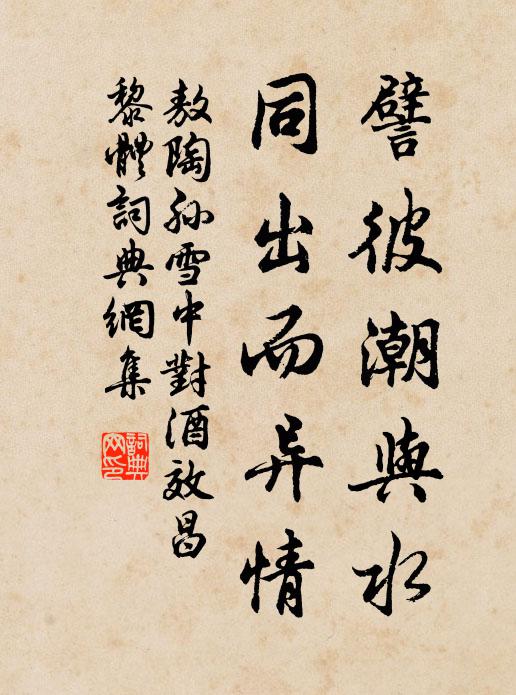 譬彼潮與水
同出而异情
敖陶孫雪中對酒效昌
黎體詞典網集
詞典网印